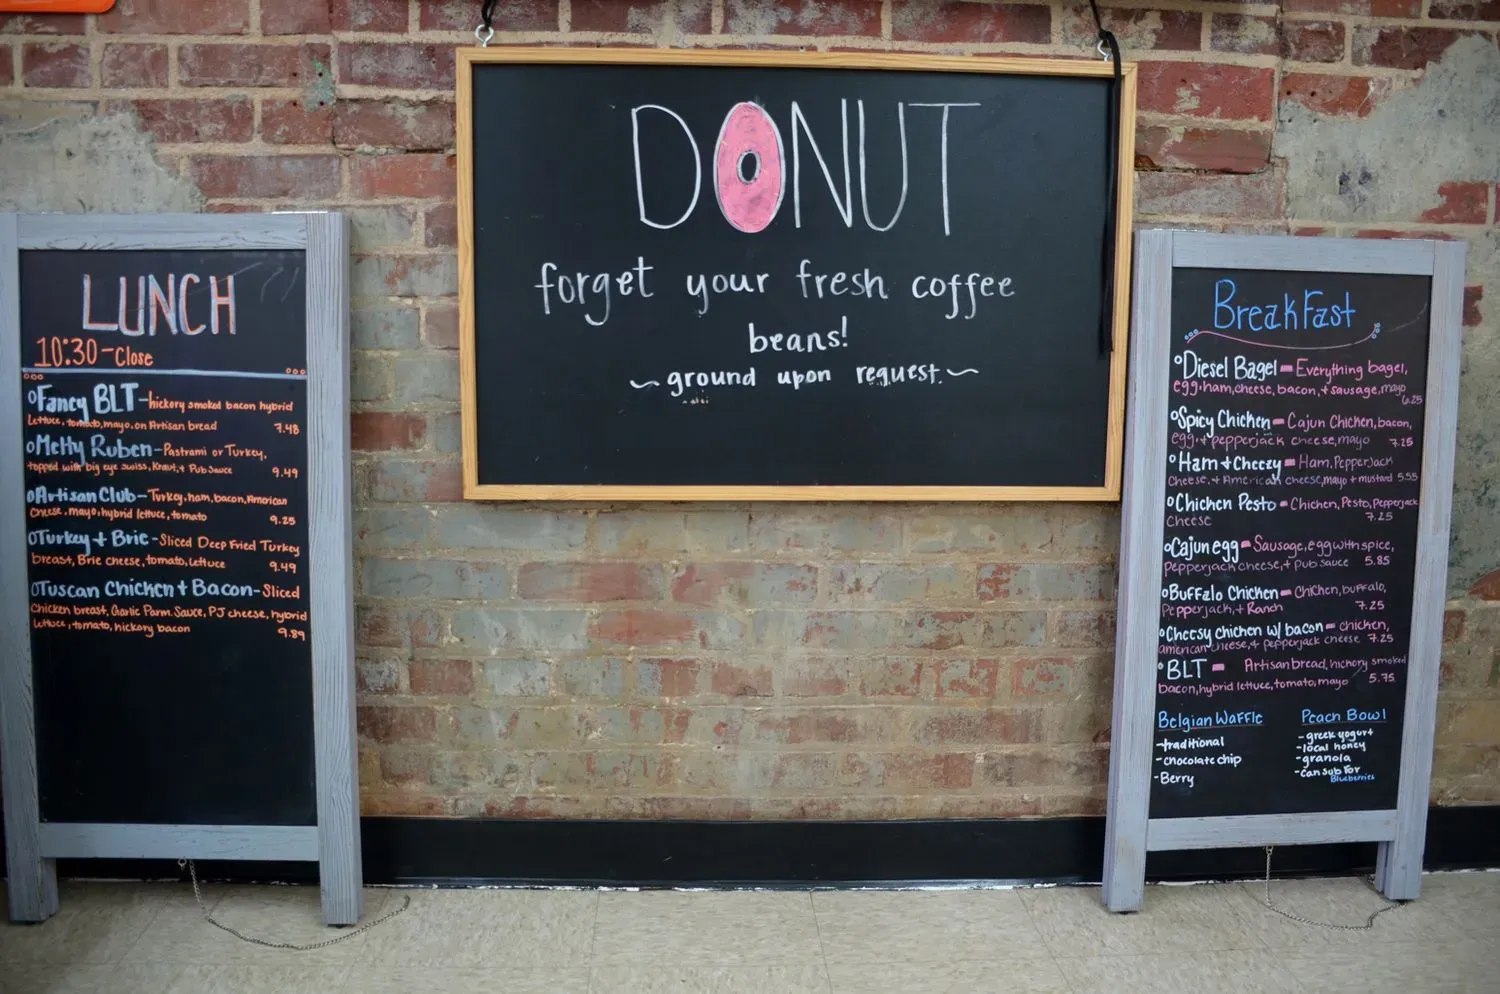 LUNCH
10:30-Close
Fancy BLT-hickory smoked bacon hybrid
lettuce, tomato, mayo, on Artisan bread 7.48
Melty Ruben-Pastrami or Turkey,
topped with big eye swiss, Kraut, + Pub Sauce 9.49
Artisan Club-Turkey, ham, bacon, American
Cheese, mayo, hybrid lettuce, tomato 9.25
Turkey + Brie-Sliced Deep Fried Turkey
breast, Brie cheese, tomato, Lettuce 9.49
Tuscan Chicken + Bacon-Sliced
Chicken breast, Garlic Parm. Sauce, PJ cheese, hybrid
lettuce, tomato, hickory bacon 9.89
DONUT
forget your fresh coffee
beans!
~ground upon request.~
BreakFast
Diesel Bagel-Everything bagel,
egg, ham, cheese, bacon, + sausage, mayo
6.25
Spicy Chicken-Cajun Chicken, bacon,
egg, + pepperjack cheese, mayo 7.25
Ham + Cheezy-Ham, PepperJack
Cheese, + American cheese, mayo + mustard 5.55
Chicken Pesto-Chicken, Pesto, Pepperjack
Cheese 7.25
Cajun egg-Sausage, egg with spice,
pepperjack cheese, + Pub sauce 5.85
Buffalo Chicken-Chicken, buffalo,
Pepperjack, + Ranch 7.25
Cheesy chicken w/ bacon-chicken,
american cheese, + pepperjack cheese 7.25
BLT- Artisan bread, hickory smoked
bacon, hybrid lettuce, tomato, mayo 5.75
Belgian Waffle
-traditional
-chocolate chip
-Berry
Peach Bowl
-greek yogurt
-local honey
-granola
-can sub for
Blueberries